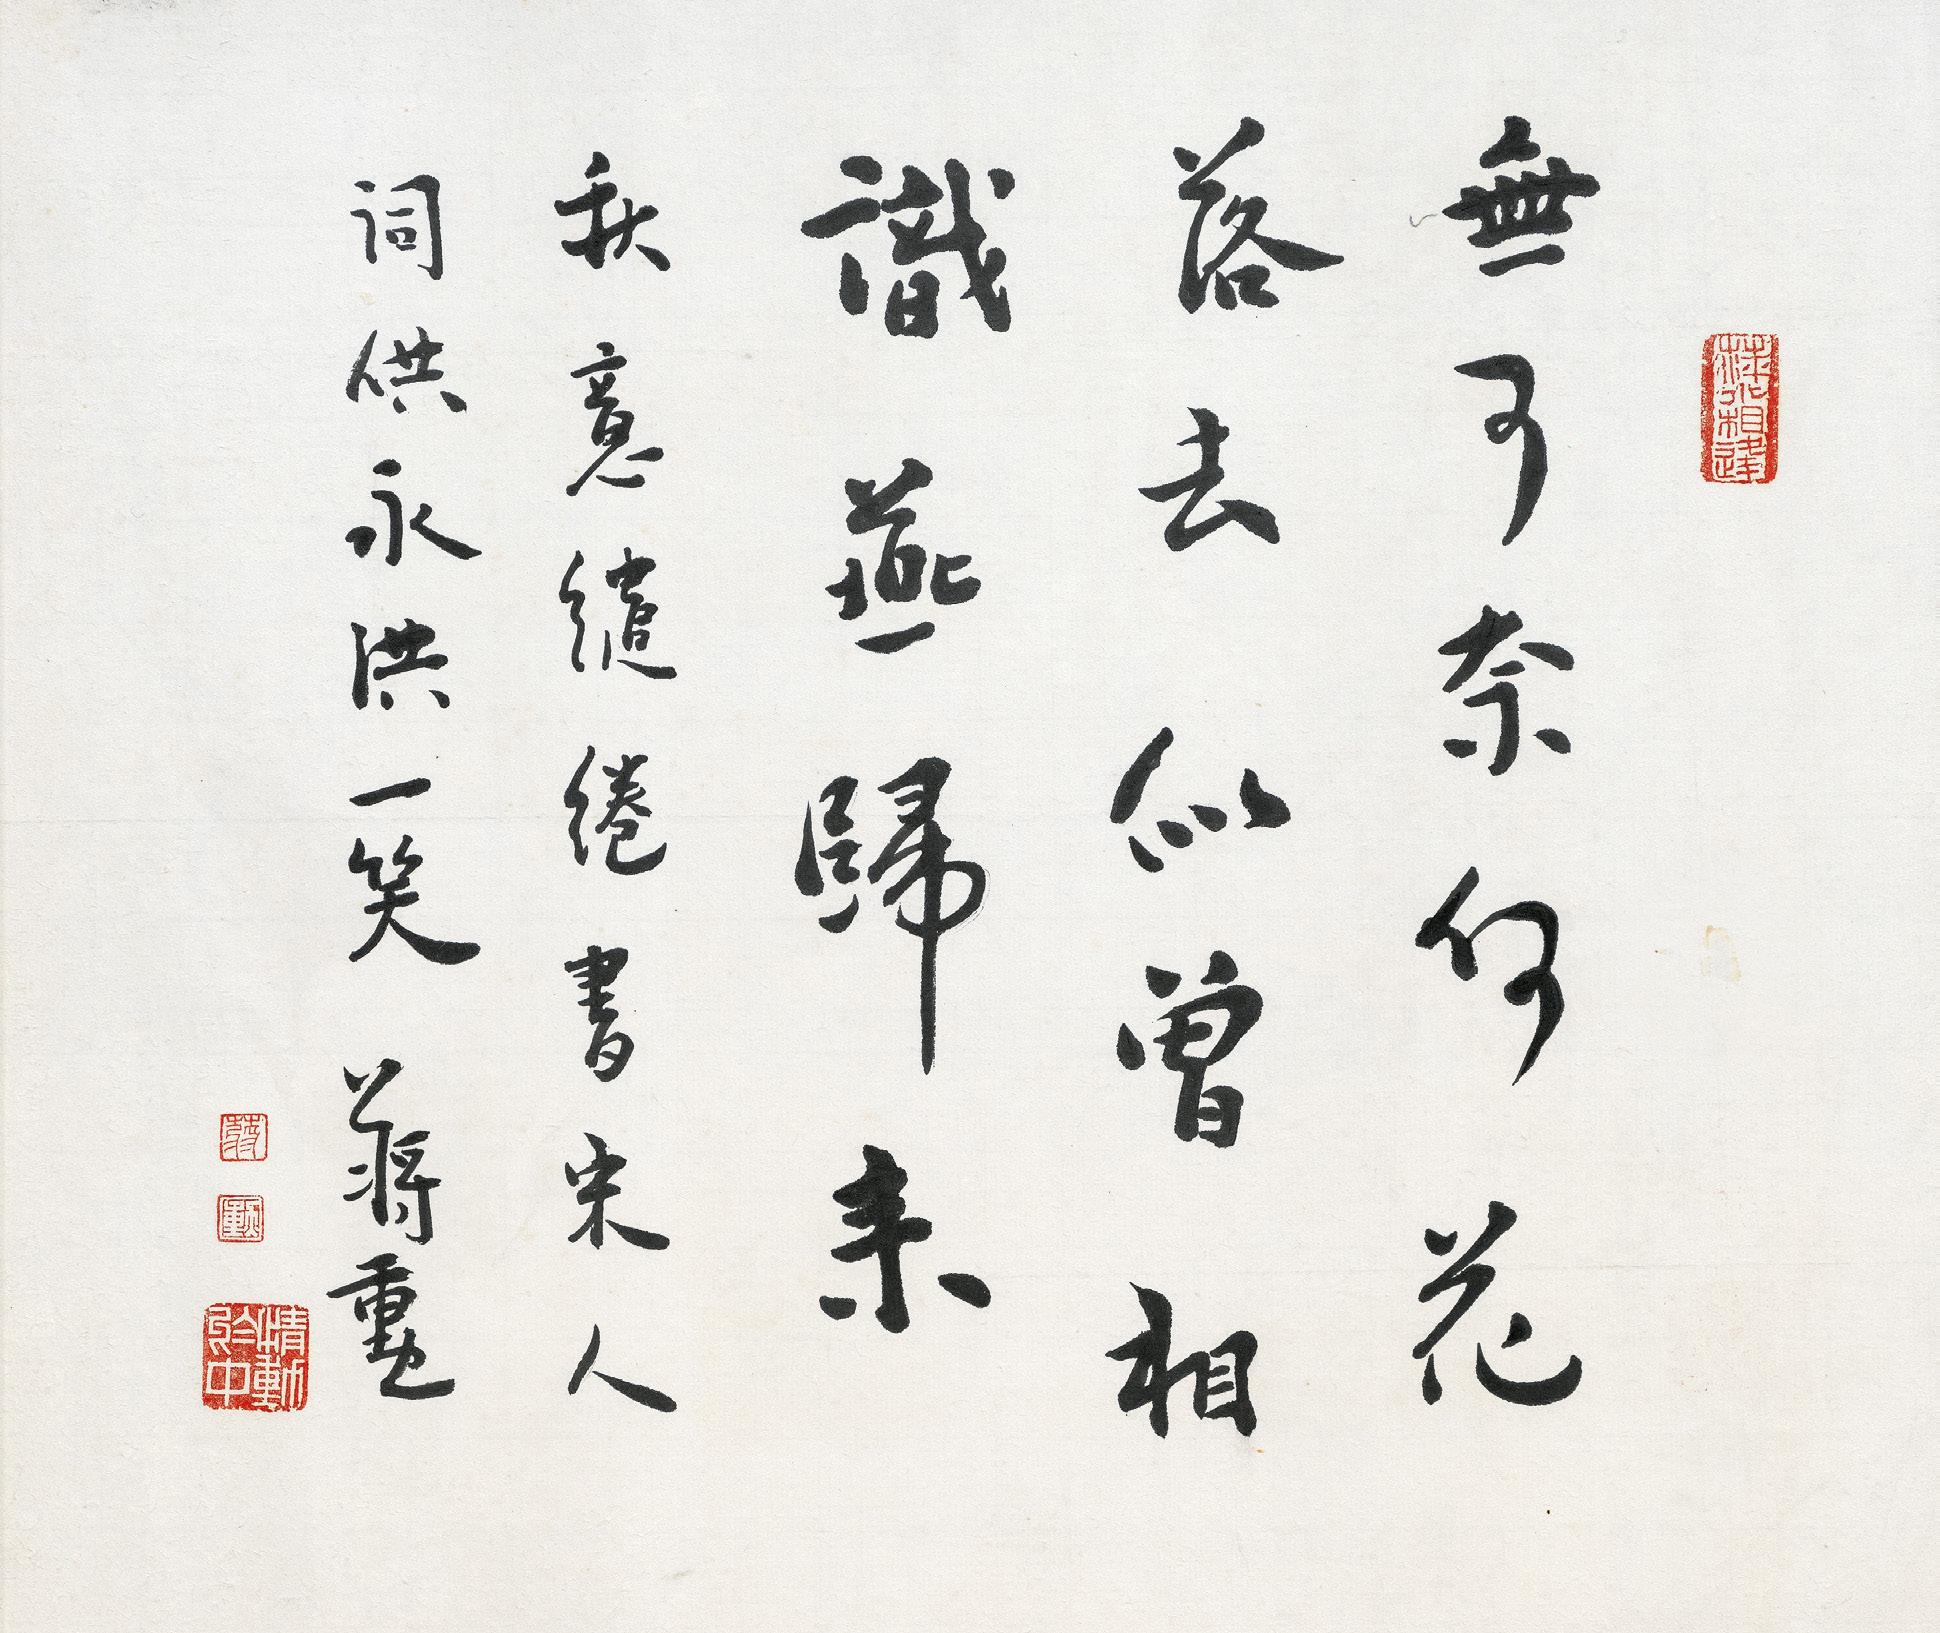 無可奈何花
落去似曾相
識燕歸來
秋意繾綣書宋人
詞供永洪一笑 蔣勳
蔣
勳
情動
於中